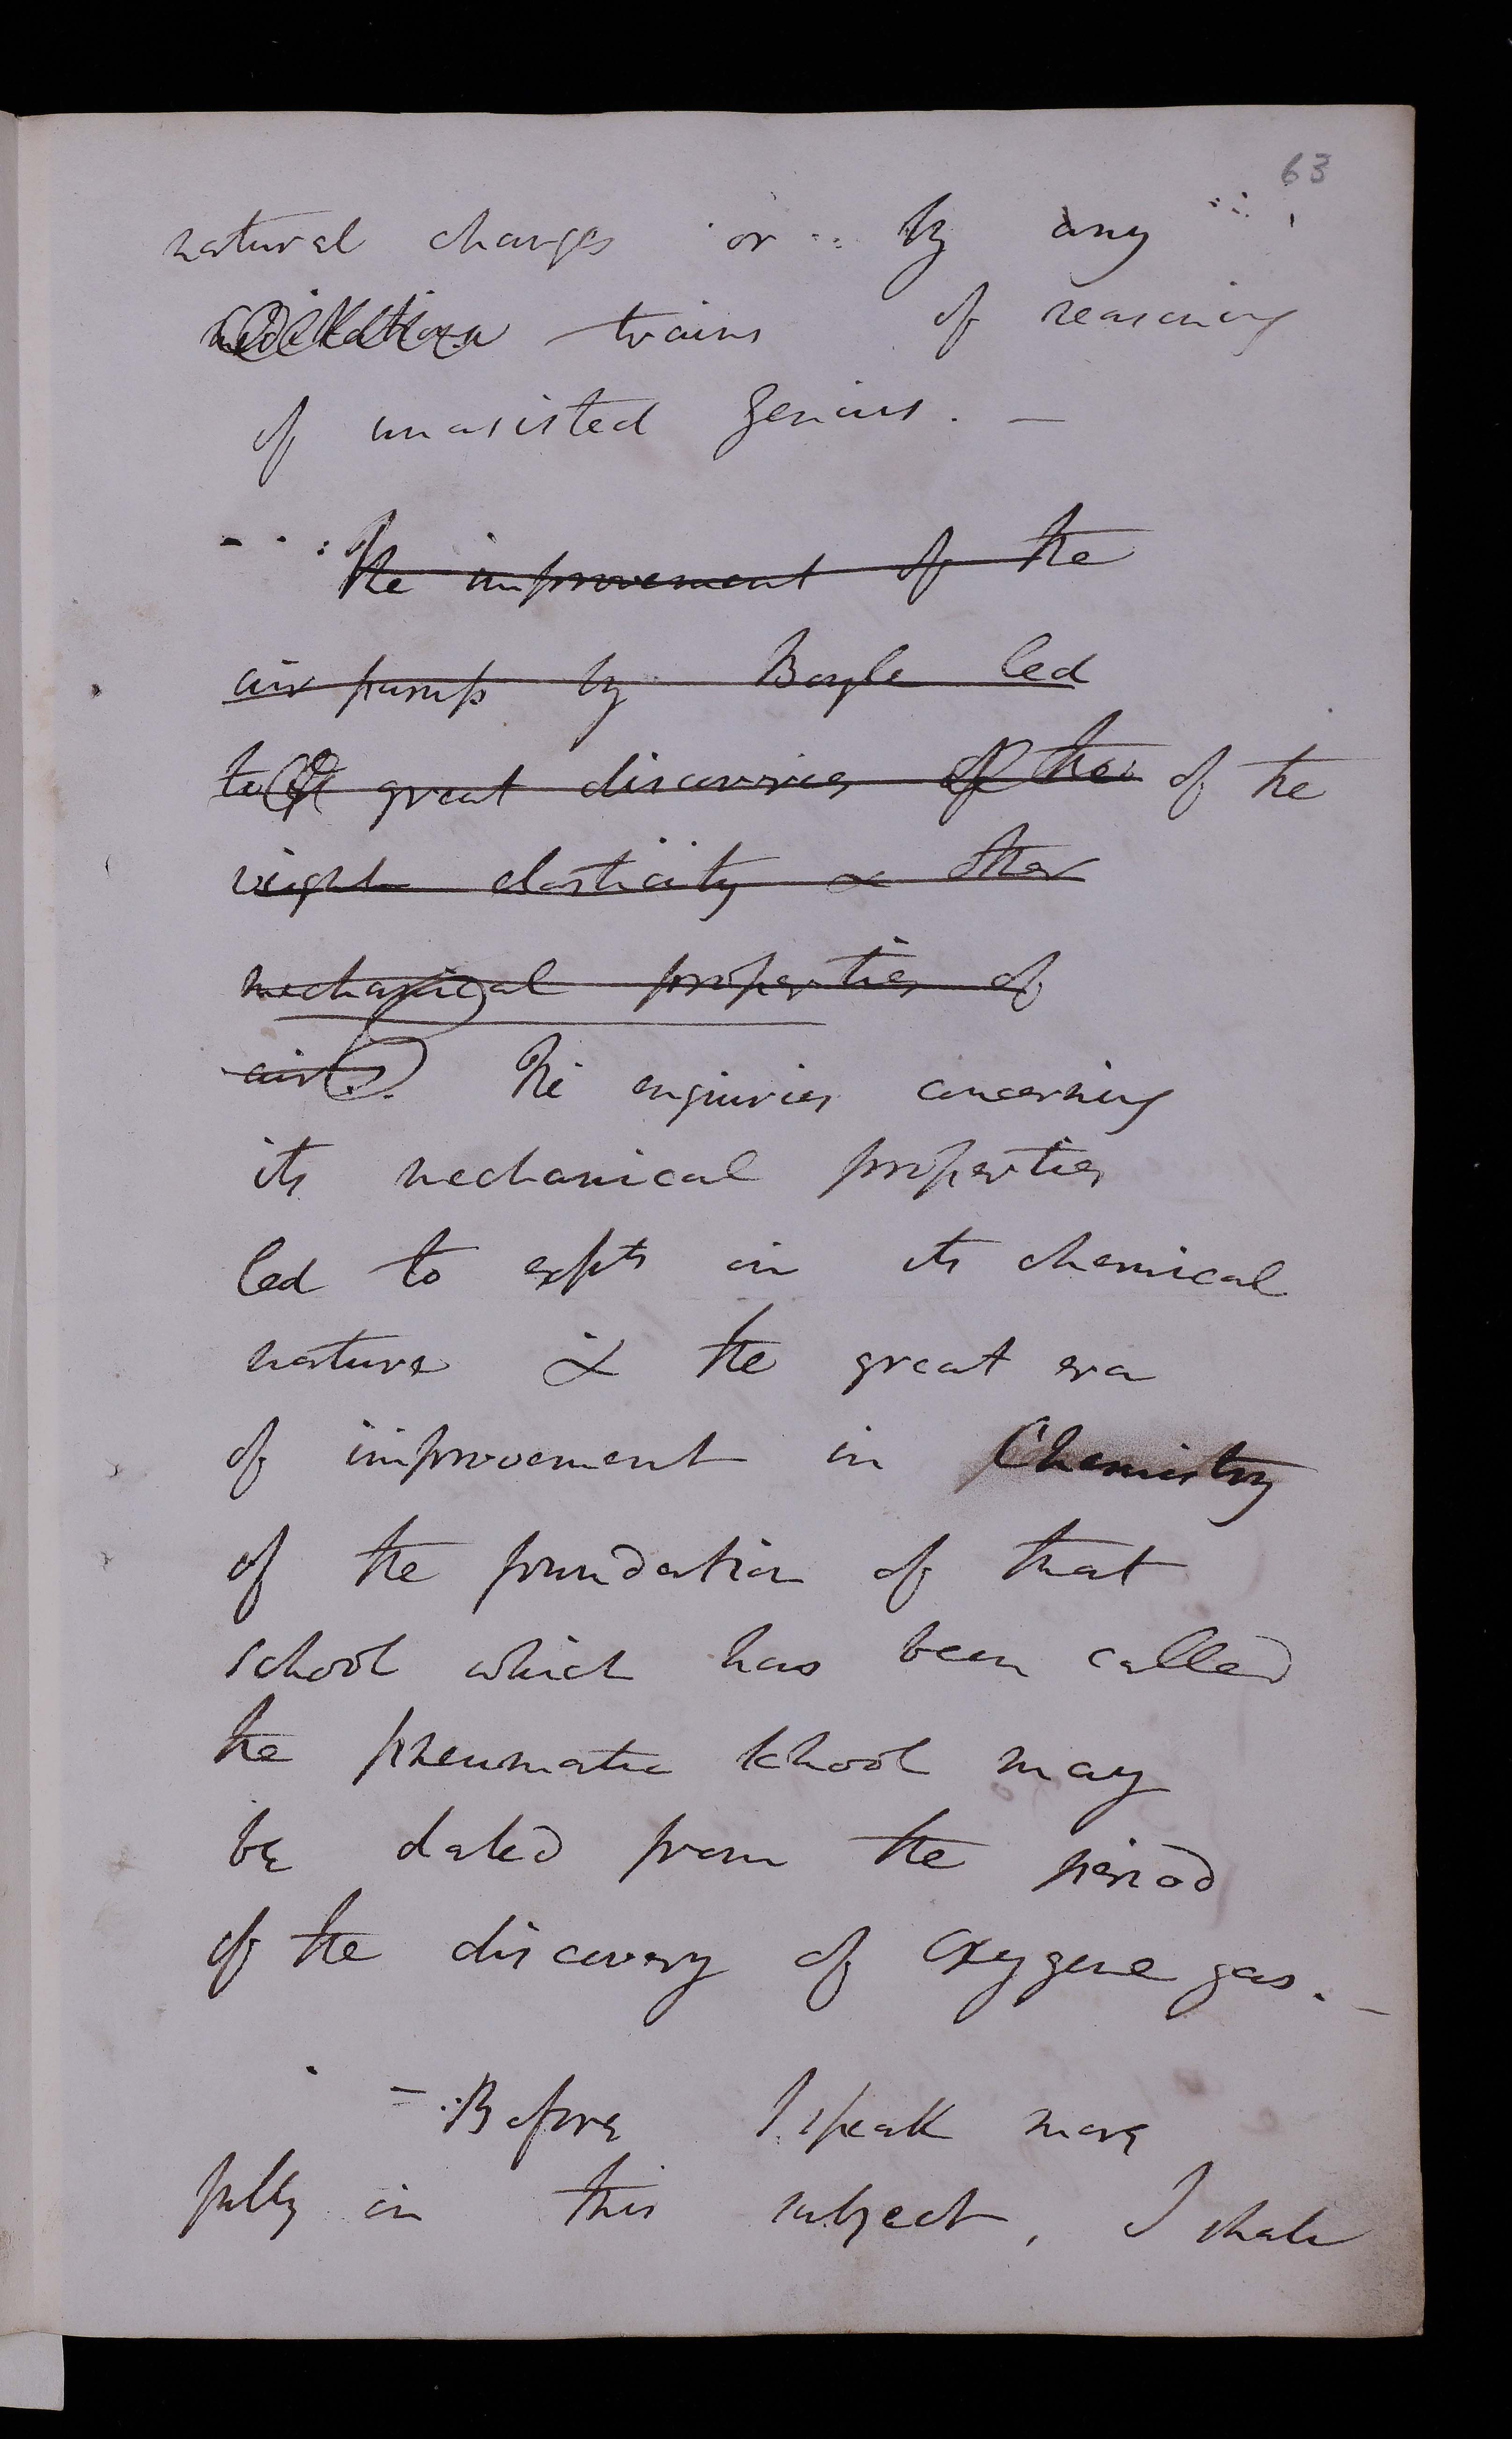 63
natural changes or by any
meditation trains of reasoning
of unasisted Genius. —
The improvement of the
air pump by Boyle led
to great discoveries of the of the
weight elasticity & other
mechanical properties of
air. The enquiries concerning
its mechanical properties
led to expts on its chemical
nature & the great era
of improvement in Chemistry
of the foundation of that
school which has been called
the pneumatic school may
be dated from the period
of the discovery of oxygene gas. —
= Before I speak more
fully on this subject, I shall